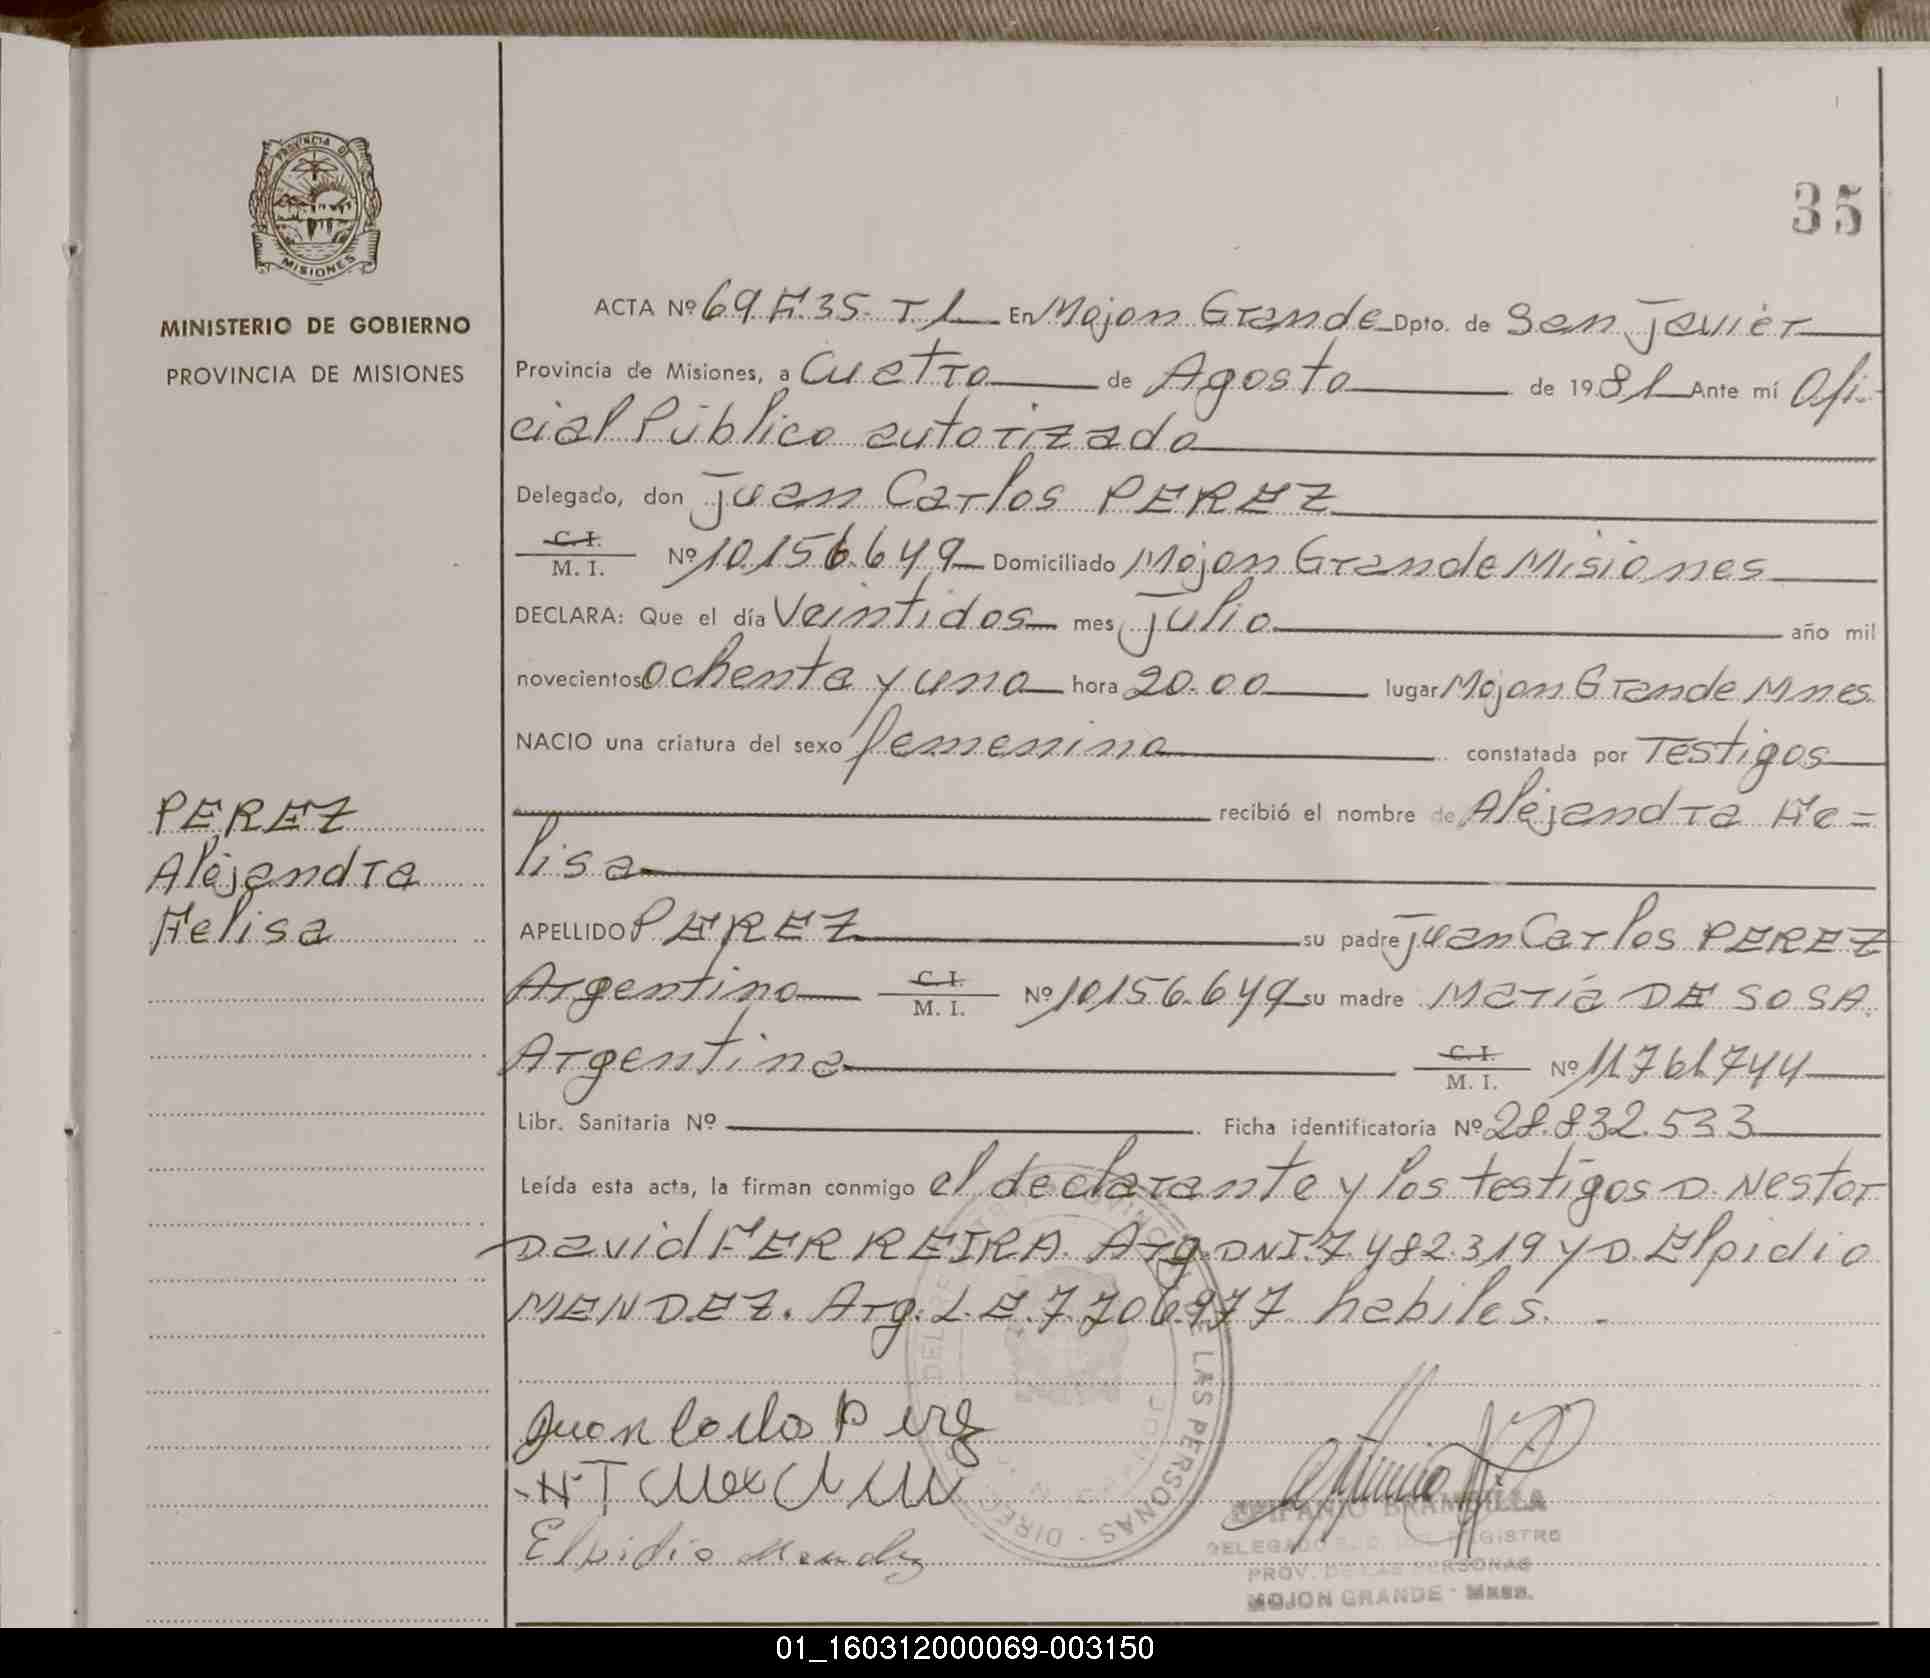 35
PROVINCIA DE
MISIONES
MINISTERIO DE GOBIERNO
PROVINCIA DE MISIONES
ACTA Nº 69 F.35. T 1 En Mojon Grande Dpto. de San Javier
Provincia de Misiones, a Cuatro de Agosto de 1981 Ante mí Ofi-
cial Público autorizado
Delegado, don Juan Carlos PEREZ
C. I.
M. I. Nº 10.156.649 Domiciliado Mojon Grande Misiones
DECLARA: Que el día Veintidos mes Julio año mil
novecientos ochenta y uno hora 20.00 lugar Mojon Grande Mnes.
NACIO una criatura del sexo femenino constatada por Testigos
recibió el nombre de Alejandra Fe=
lisa
PEREZ
Alejandra
Felisa
APELLIDO PEREZ su padre Juan Carlos PEREZ
Argentino C. I.
M. I. Nº 10.156.649 su madre María DE SOSA.
Argentina C. I.
M. I. Nº 11.761.744
Libr. Sanitaria Nº Ficha identificatoria Nº 28.832.533
Leída esta acta, la firman conmigo el declarante y los testigos D. Nestor
David FERREIRA. Arg. DNI. 7.482.319 y D. Elpidio
MENDEZ. Arg. L.E. 7.706.977 habiles.
Juan Carlos Perez
Elpidio Mendez
DE LAS PERSONAS - DIREC
EPIFANIO BRAMBILLA
DELEGADO REGISTRO
PROV. DE LAS PERSONAS
MOJON GRANDE - Mnes.
01_160312000069-003150